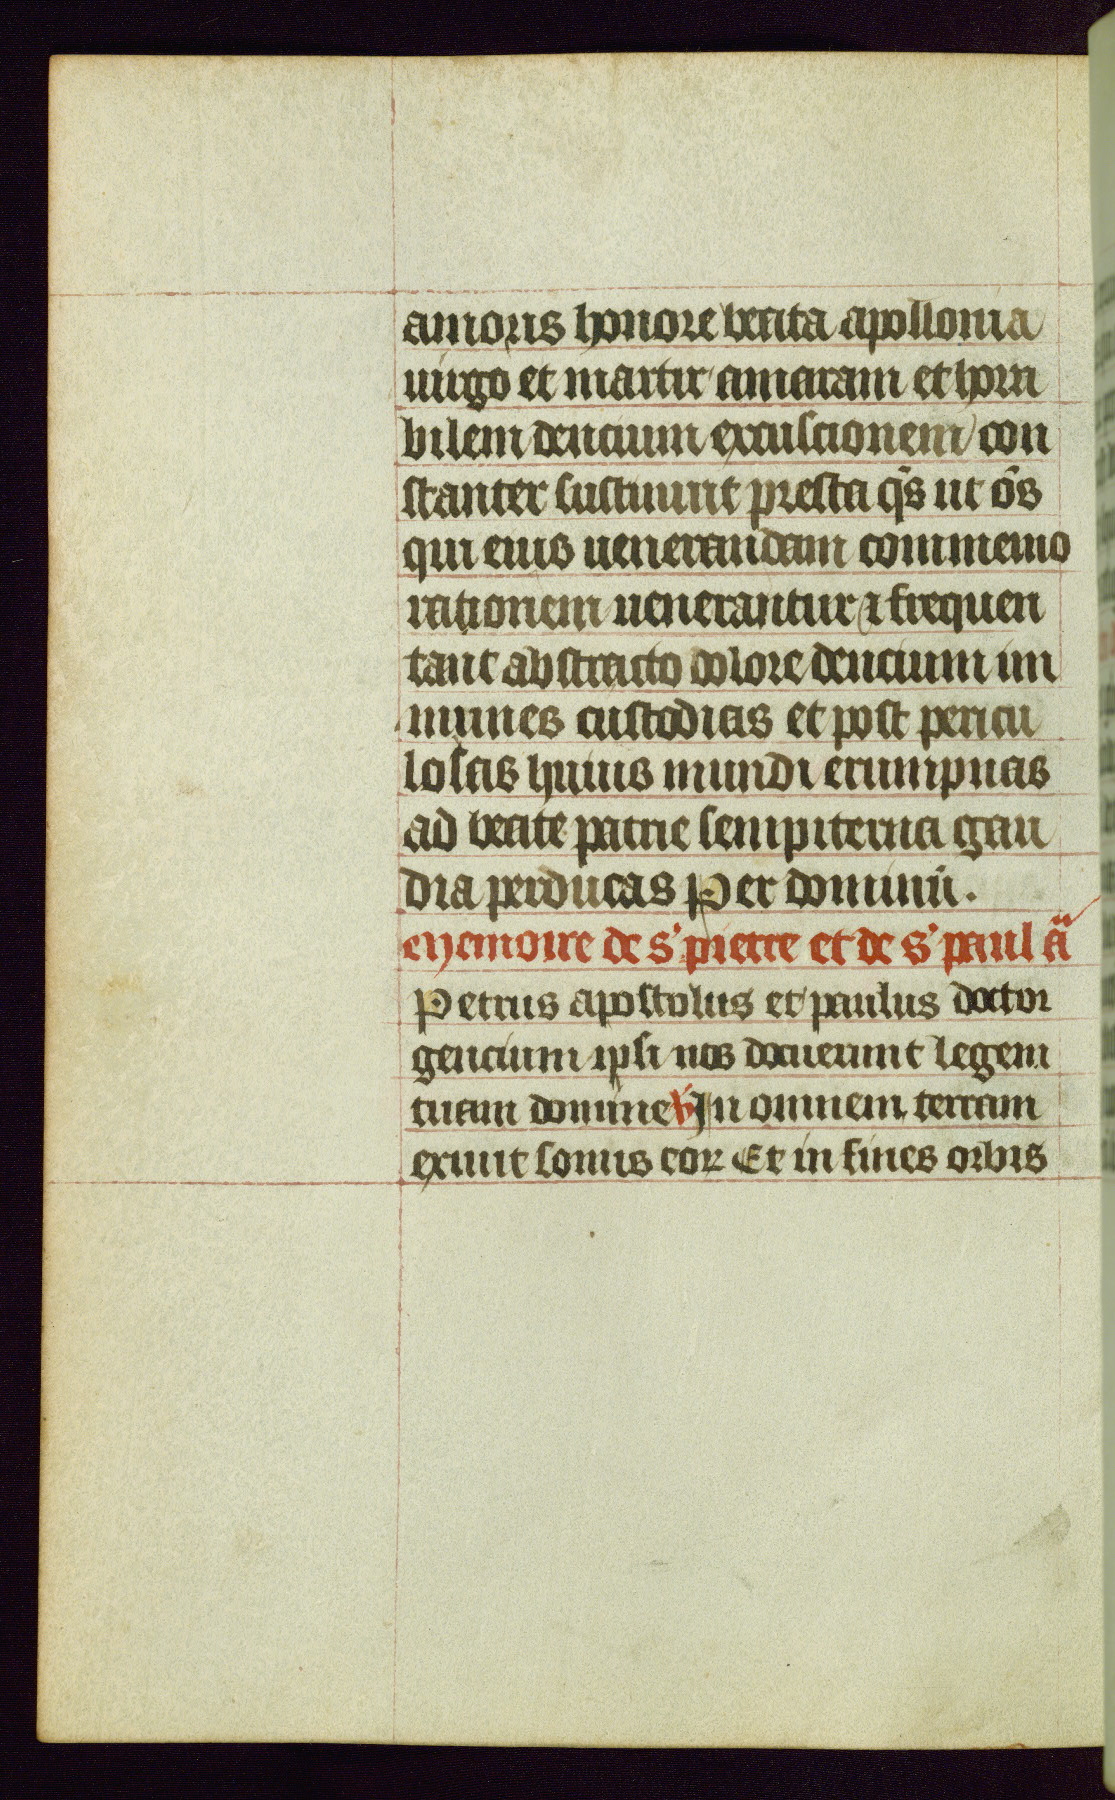 amoris honore beata apollonia
uirgo et martir amaram et horri
bilem dencium excuscionem con
stanter sustinuit presta q̄s ut ōs
qui eius uenerandam commemo
rationem uenerantur ⁊ frequen
tant abstracto dolore dencium im
munes custodias et post pericu
losas huius mundi erumpnas
ad beate patrie sempiterna gau
dia perducas Per dominū.
Memoire de s' pierre et de s' paul ā
Petrus apostolus et paulus doctor
gencium ipsi nos docuerunt legem
tuam domine ℣ In omnem terram
exiuit sonus eoꝝ Et in fines orbis